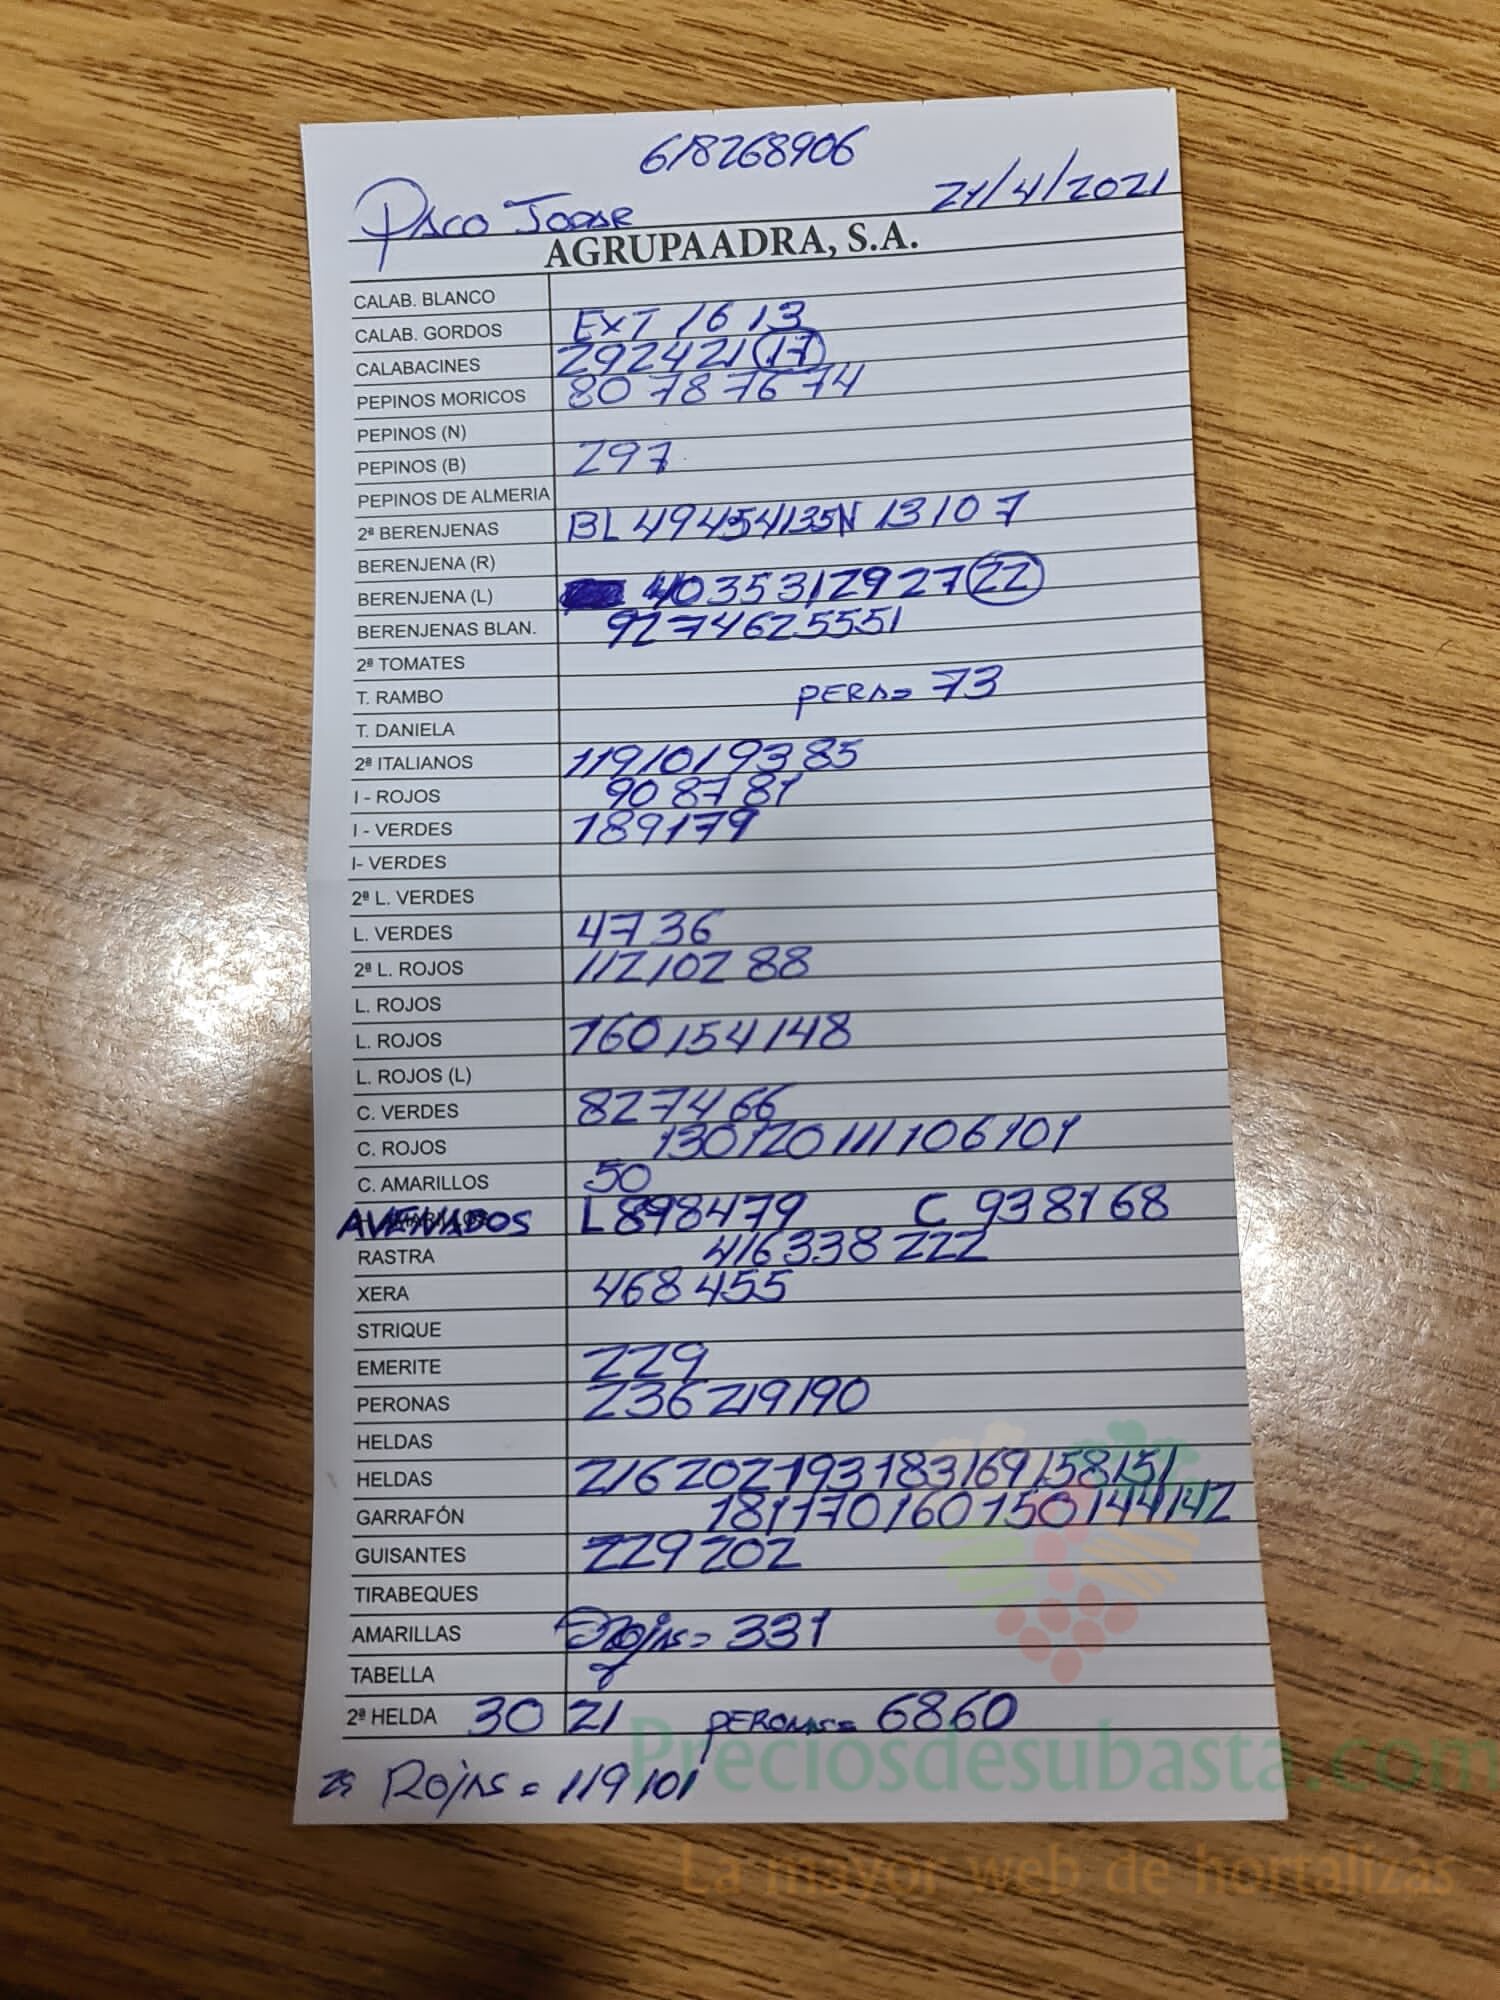 618268906
PACO JODAR 21/4/2021
AGRUPAADRA, S.A.
CALAB. BLANCO
CALAB. GORDOS EXT 16 13
CALABACINES 29 24 21 (17)
PEPINOS MORICOS 80 78 76 74
PEPINOS (N)
PEPINOS (B) 297
PEPINOS DE ALMERIA
2ª BERENJENAS BL 49 45 41 35 N 13 10 7
BERENJENA (R)
BERENJENA (L) 40 35 31 29 27 (22)
BERENJENAS BLAN. 92 74 62 55 51
2ª TOMATES
T. RAMBO PERA= 73
T. DANIELA
2ª ITALIANOS 119 101 93 85
I - ROJOS 90 87 81
I - VERDES 189 179
I- VERDES
2ª L. VERDES
L. VERDES 47 36
2ª L. ROJOS 112 102 88
L. ROJOS
L. ROJOS 160 154 148
L. ROJOS (L)
C. VERDES 82 74 66
C. ROJOS 130 120 111 106 101
C. AMARILLOS 50
AVENADOS L 89 84 79 C 93 81 68
RASTRA 416 338 222
XERA 468 455
STRIQUE
EMERITE 229
PERONAS 236 219 190
HELDAS
HELDAS 216 202 193 183 169 158 151
GARRAFÓN 181 170 160 150 144 142
GUISANTES 229 202
TIRABEQUES
AMARILLAS Rojas= 331
TABELLA
2ª HELDA 30 21 PERONAS= 68 60
2ª Rojas = 119 101
Preciosdesubasta.com
La mayor web de hortalizas